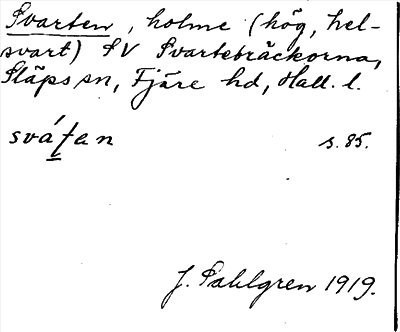 Svarten, holme (hög, hel-
svart) SV Svartebräckorna,
Släps sn, Fjäre hd, Hall. l.
svátan s. 85.
J. Sahlgren 1919.